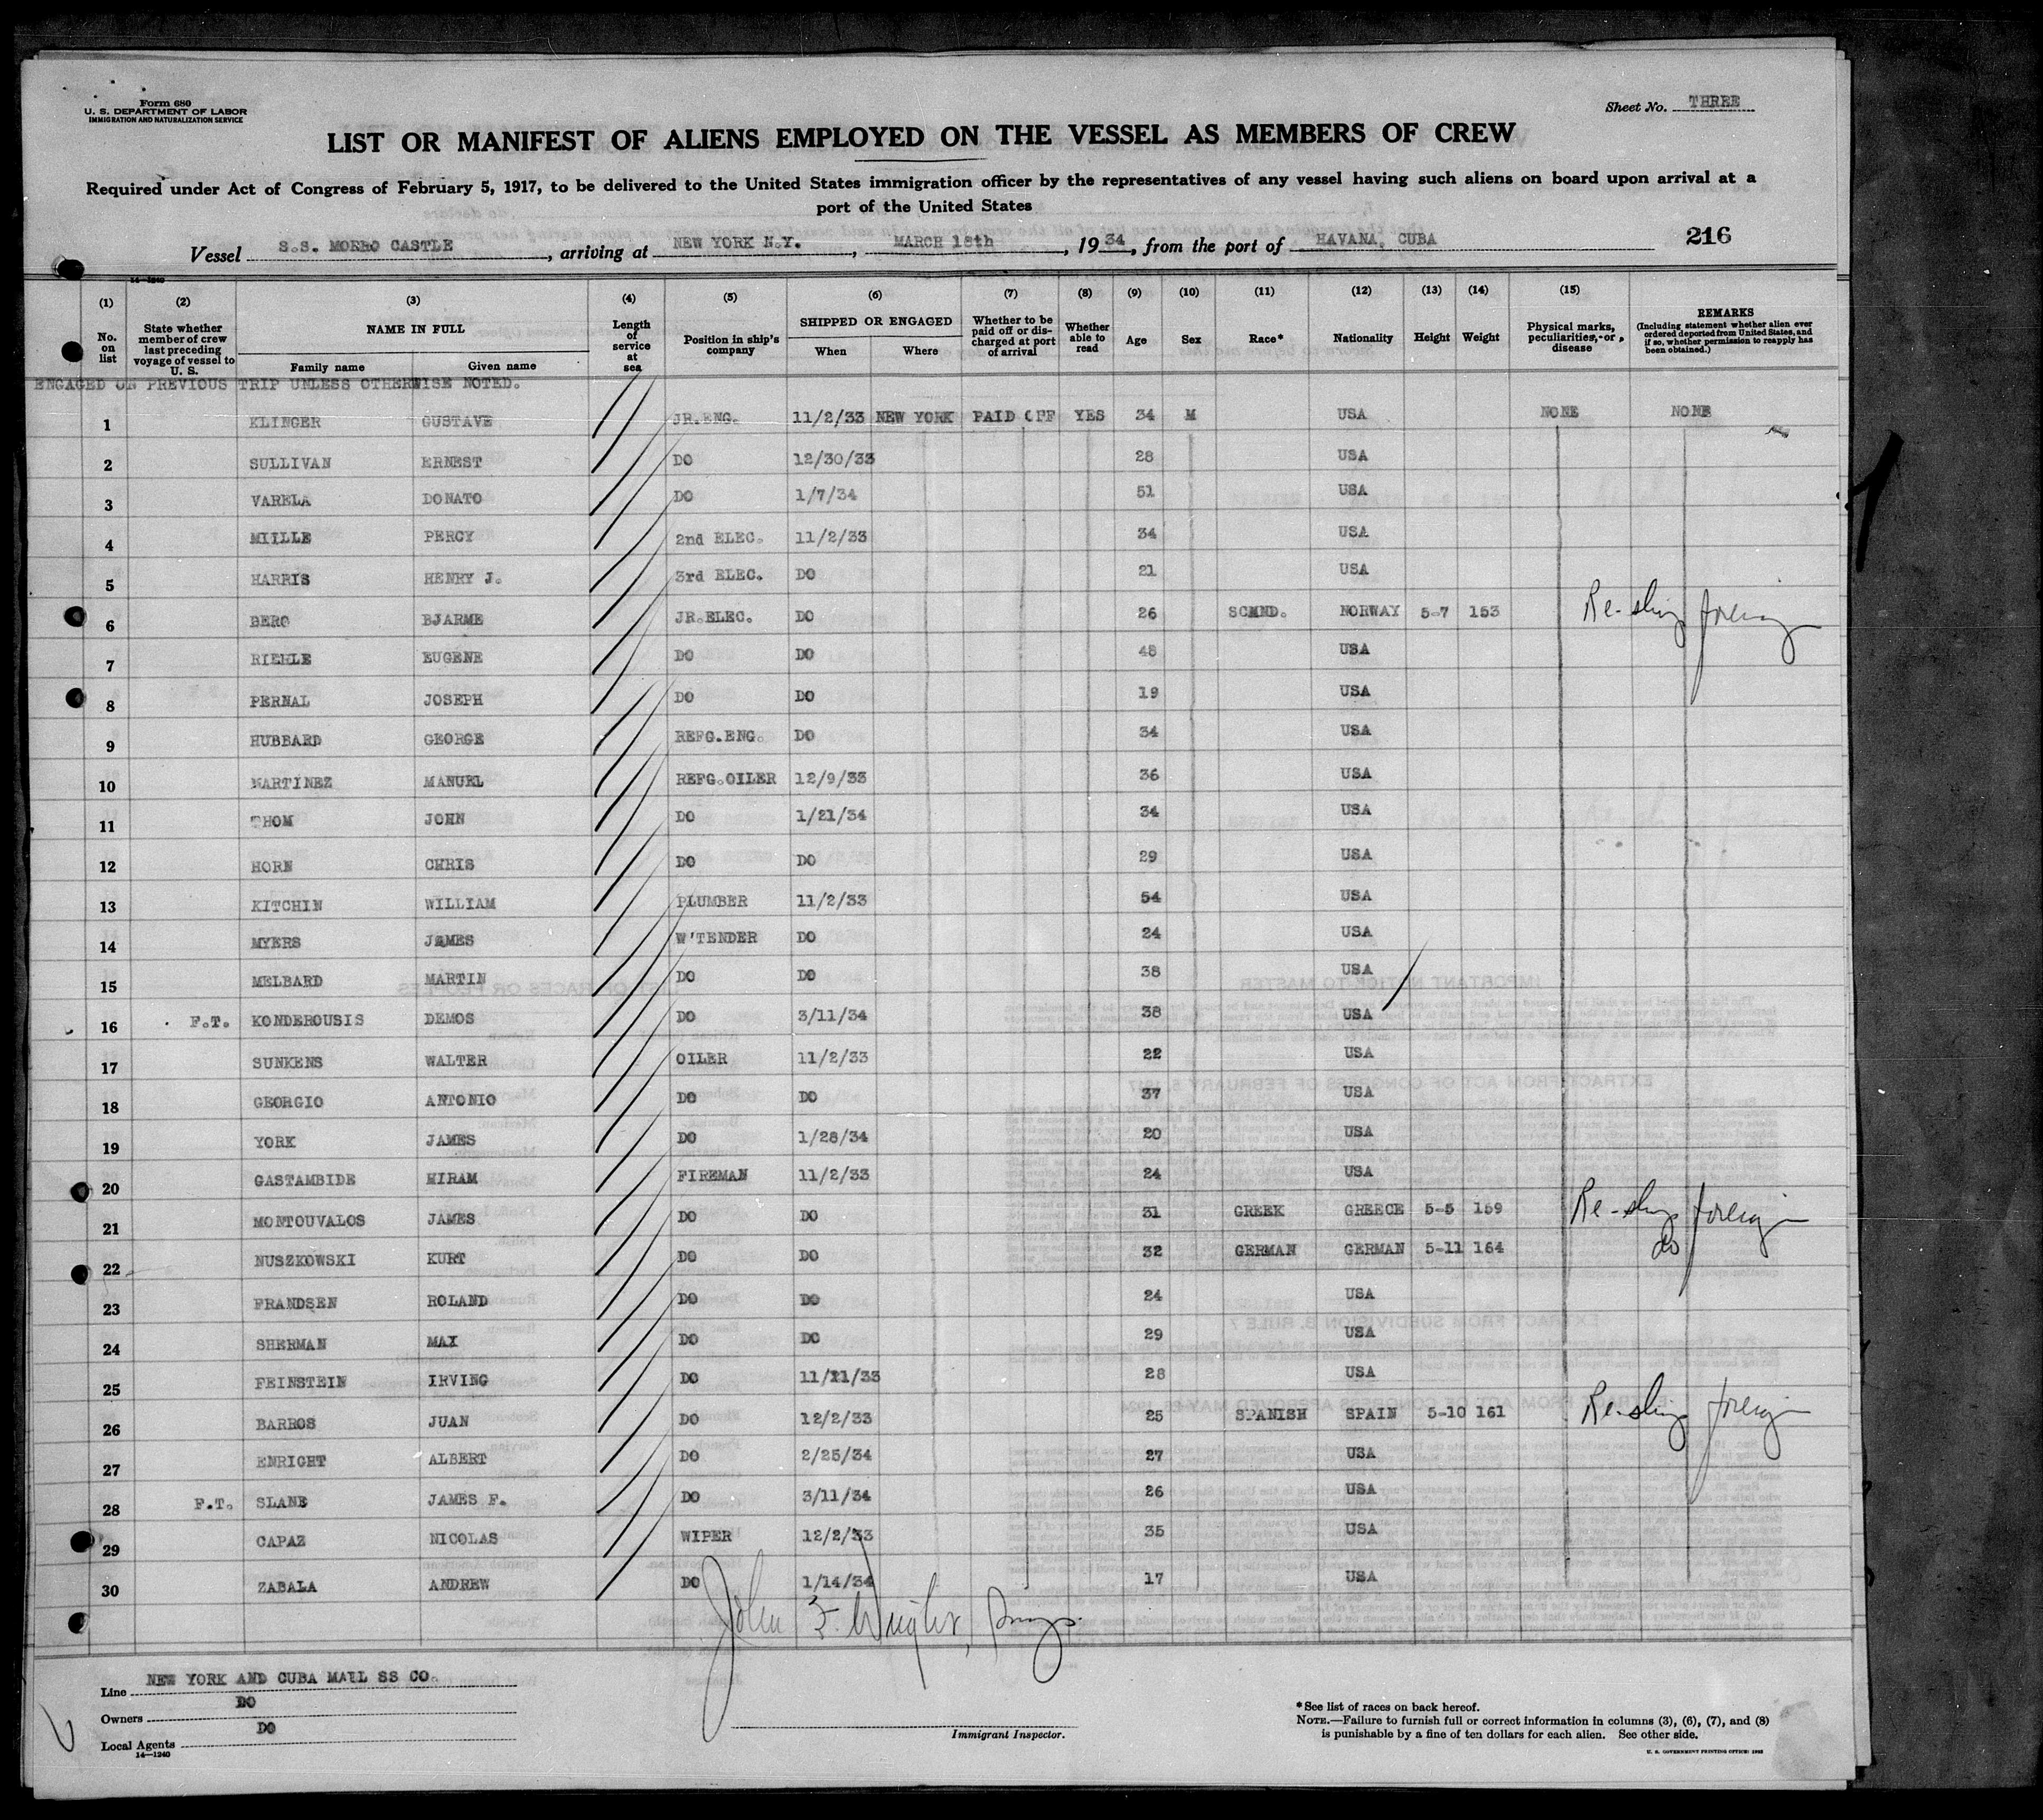 Form 680
U. S. DEPARTMENT OF LABOR
IMMIGRATION AND NATURALIZATION SERVICE
Sheet No. THREE
LIST OR MANIFEST OF ALIENS EMPLOYED ON THE VESSEL AS MEMBERS OF CREW
Required under Act of Congress of February 5, 1917, to be delivered to the United States immigration officer by the representatives of any vessel having such aliens on board upon arrival at a
port of the United States
216
Vessel S.S. MORRO CASTLE, arriving at NEW YORK N.Y., MARCH 18th, 1934, from the port of HAVANA, CUBA
14-1240
(1) (2) (3) (4) (5) (6) (7) (8) (9) (10) (11) (12) (13) (14) (15)
No. on list State whether member of crew last preceding voyage of vessel to U. S. NAME IN FULL Family name Given name Length of service at sea Position in ship's company SHIPPED OR ENGAGED When Where Whether to be paid off or discharged at port of arrival Whether able to read Age Sex Race* Nationality Height Weight Physical marks, peculiarities, or disease REMARKS (Including statement whether alien ever ordered deported from United States, and if so, whether permission to reapply has been obtained.)
ENGAGED ON PREVIOUS TRIP UNLESS OTHERWISE NOTED.
1 KLINGER GUSTAVE JR.ENG. 11/2/33 NEW YORK PAID OFF YES 34 M USA NONE NONE
2 SULLIVAN ERNEST DO 12/30/33 28 USA
3 VARELA DONATO DO 1/7/34 51 USA
4 MIILLE PERCY 2nd ELEC. 11/2/33 34 USA
5 HARRIS HENRY J. 3rd ELEC. DO 21 USA
6 BERG BJARME JR.ELEC. DO 26 SCAND. NORWAY 5-7 153 Re-ship foreign
7 RIEHLE EUGENE DO DO 48 USA
8 PERNAL JOSEPH DO DO 19 USA
9 HUBBARD GEORGE REFG.ENG. DO 34 USA
10 MARTINEZ MANUEL REFG.OILER 12/9/33 36 USA
11 THOM JOHN DO 1/21/34 34 USA
12 HORN CHRIS DO DO 29 USA
13 KITCHIN WILLIAM PLUMBER 11/2/33 54 USA
14 MYERS JAMES W'TENDER DO 24 USA
15 MELBARD MARTIN DO DO 38 USA
16 F.T. KONDEROUSIS DEMOS DO 3/11/34 38 USA
17 SUNKENS WALTER OILER 11/2/33 22 USA
18 GEORGIO ANTONIO DO DO 37 USA
19 YORK JAMES DO 1/28/34 20 USA
20 GASTAMBIDE HIRAM FIREMAN 11/2/33 24 USA
21 MONTOUVALOS JAMES DO DO 31 GREEK GREECE 5-5 159 Re-ship foreign
22 NUSZKOWSKI KURT DO DO 32 GERMAN GERMAN 5-11 164 do
23 FRANDSEN ROLAND DO DO 24 USA
24 SHERMAN MAX DO DO 29 USA
25 FEINSTEIN IRVING DO 11/21/33 28 USA
26 BARROS JUAN DO 12/2/33 25 SPANISH SPAIN 5-10 161 Re-ship foreign
27 ENRIGHT ALBERT DO 2/25/34 27 USA
28 F.T. SLANE JAMES F. DO 3/11/34 26 USA
29 CAPAZ NICOLAS WIPER 12/2/33 35 USA
30 ZABALA ANDREW DO 1/14/34 17 USA
John
Line NEW YORK AND CUBA MAIL SS CO.
Owners DO
Local Agents DO
14-1240
Immigrant Inspector.
*See list of races on back hereof.
NOTE.—Failure to furnish full or correct information in columns (3), (6), (7), and (8)
is punishable by a fine of ten dollars for each alien. See other side.